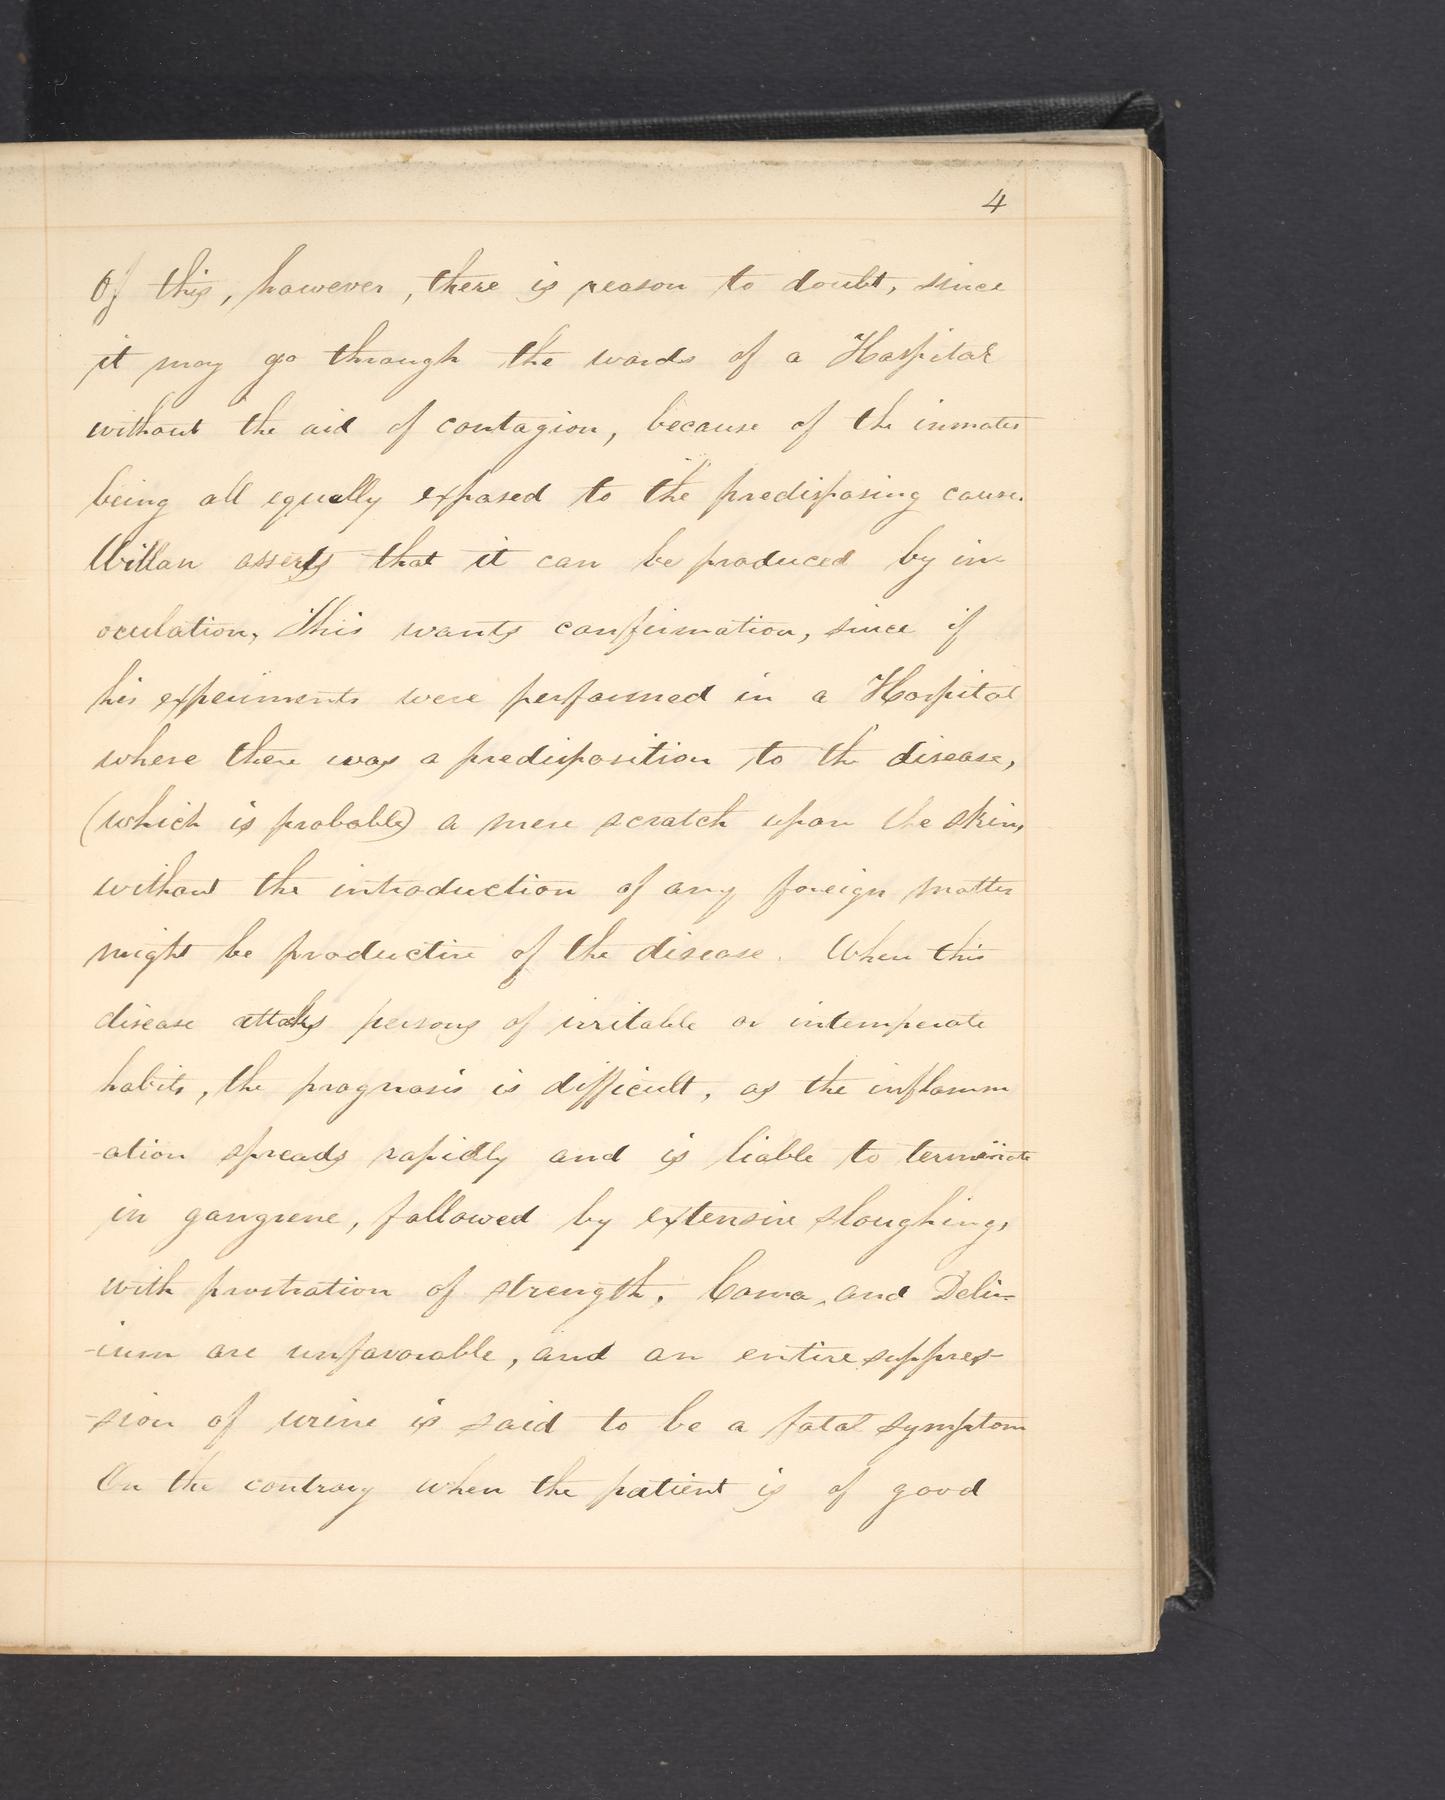 4
Of this, however, there is reason to doubt, since
it may go through the wards of a Hospital
without the aid of contagion, because of the inmates
being all equally exposed to the predisposing cause.
Willan asserts that it can be produced by in-
oculation, This wants confirmation, since if
his experiments were performed in a Hospital
where there was a predisposition to the disease,
(which is probable) a mere scratch upon the skin,
without the introduction of any foreign matter
might be productive of the disease. When this
disease attaks persons of irritable or intemperate
habits, the prognosis is difficult, as the inflamm
-ation spreads rapidly and is liable to terminate
in gangrene, followed by extensive sloughing,
with prostration of strength. Coma, and Delir-
-ium are unfavorable, and an entire suppres-
-sion of urine is said to be a fatal symptom
On the contrary when the patient is of good